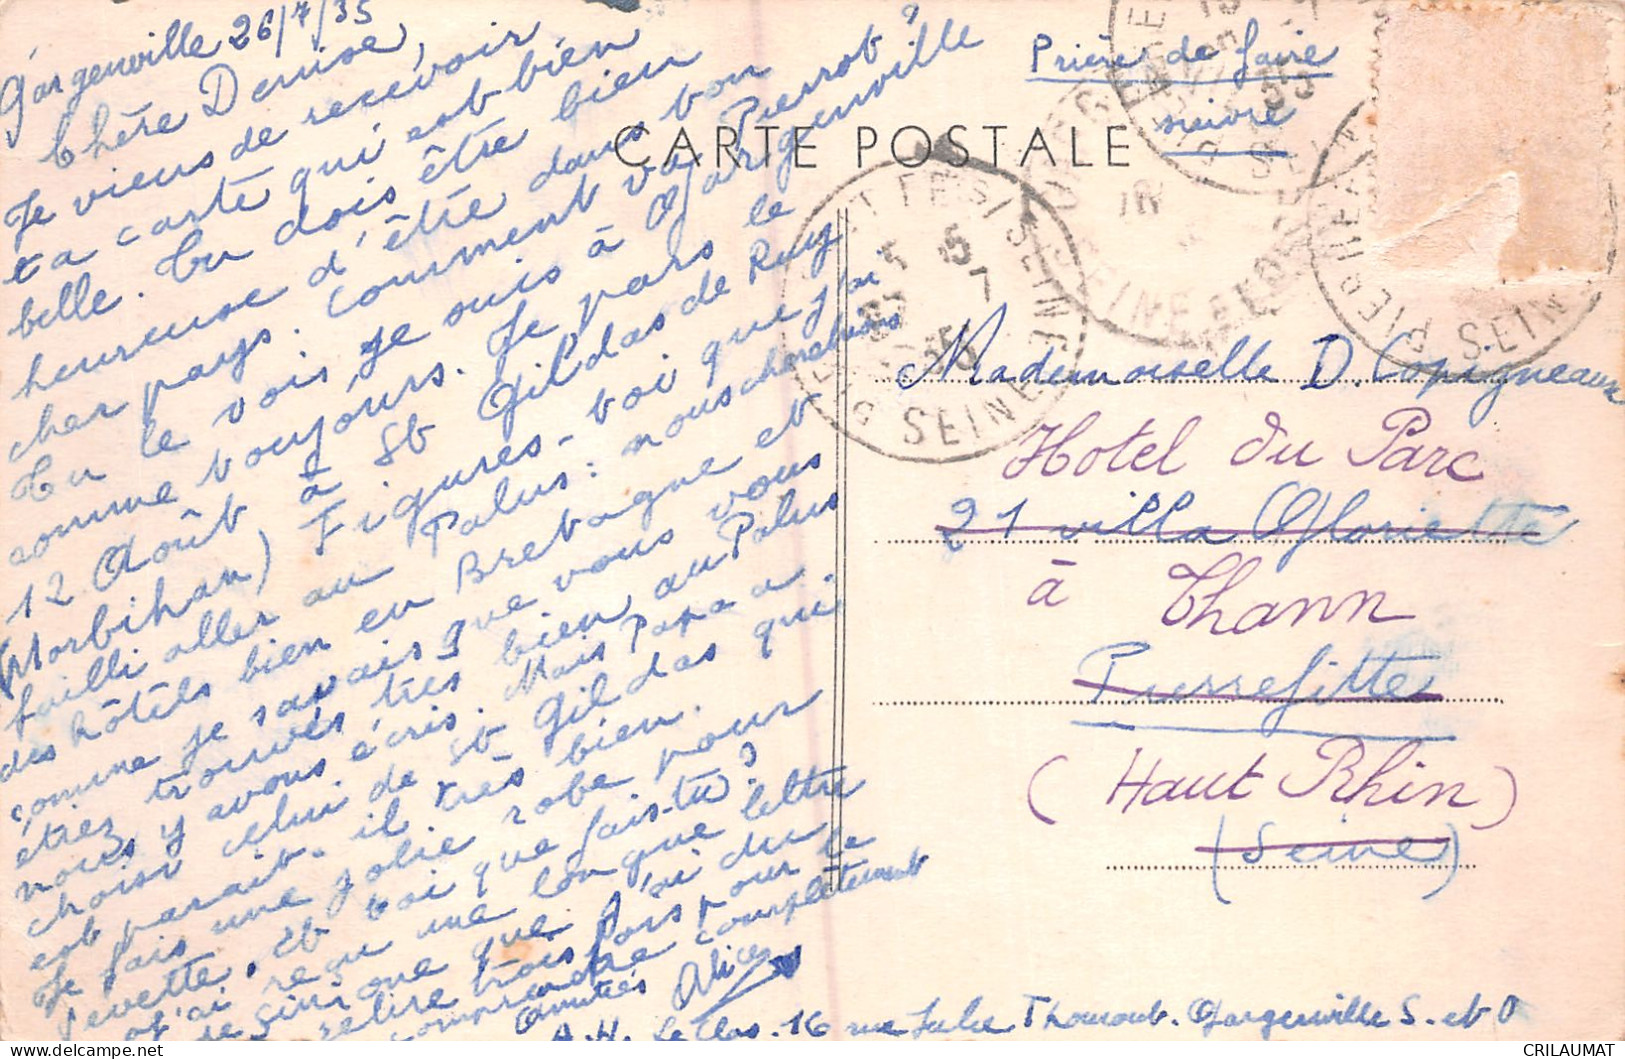 Gargenville 26/7/35
Chère Denise,
Je viens de recevoir
ta carte qui est bien
belle. Tu dois être bien
heureuse d'être dans ton
cher pays. Comment va Pierrot?
Tu le vois je suis à Gargenville
comme toujours. Je pars le
12 Août à St Gildas de Ruy
(Morbihan) Figures-toi que j'ai
failli aller au Palus: nous cherchions
des hôtels bien en Bretagne et
comme je savais que vous vous
étiez trouvés très bien au Palus
nous y avons écris. Mais Papa a
choisi celui de St Gildas qui
est parait-il très bien.
Je fais une jolie robe pour
Yevette. Et toi que fais-tu?
J'ai reçu une longue lettre
de Simone que j'ai du
relire trois fois pour le
comprendre complètement
Amitiés Alice
A.H. Le Clos. 16 rue Thourout. Gargenville S. et O
CARTE POSTALE
Prière de faire
suivre
Mademoiselle D. Copigneaux
Hotel du Parc
21 villa Gloriette
à Thann
Pierrefitte
(Haut Rhin)
(Seine)
PIERREFITTE S/SEINE
SEINE
5 7
35
SEINE
CRILAUMAT